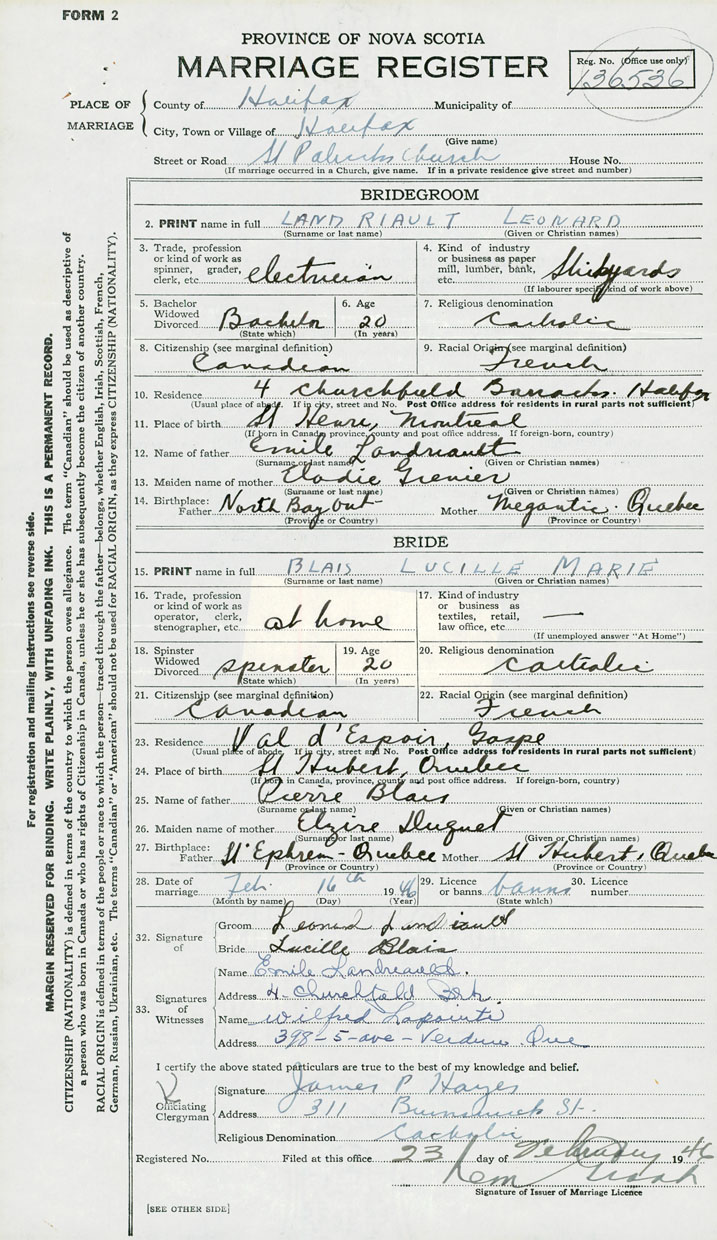 FORM 2
PROVINCE OF NOVA SCOTIA
MARRIAGE REGISTER
Reg. No. (Office use only)
136536
PLACE OF MARRIAGE
County of Halifax Municipality of
City, Town or Village of Halifax
(Give name)
Street or Road St Patricks Church House No.
(If marriage occurred in a Church, give name. If in a private residence give street and number)
BRIDEGROOM
2. PRINT name in full LANDRIAULT LEONARD
(Surname or last name) (Given or Christian names)
3. Trade, profession or kind of work as spinner, grader, clerk, etc. electrician
4. Kind of industry or business as paper mill, lumber, bank, etc. Shipyards
(If labourer specify kind of work above)
5. Bachelor Widowed Divorced Bachelor
(State which)
6. Age 20
(In years)
7. Religious denomination
Catholic
8. Citizenship (see marginal definition)
Canadian
9. Racial Origin (see marginal definition)
French
10. Residence 4 Churchfield Barracks. Halifax
(Usual place of abode. If in city, street and No. Post Office address for residents in rural parts not sufficient)
11. Place of birth St Henri, Montreal
(If born in Canada, province, county and post office address. If foreign-born, country)
12. Name of father Emile Landriault
(Surname or last name) (Given or Christian names)
13. Maiden name of mother Elodie Grenier
(Surname or last name) (Given or Christian names)
14. Birthplace: Father North Bay Ont Mother Megantic. Quebec
(Province or Country) (Province or Country)
BRIDE
15. PRINT name in full BLAIS LUCILLE MARIE
(Surname or last name) (Given or Christian names)
16. Trade, profession or kind of work as operator, clerk, stenographer, etc. at home
17. Kind of industry or business as textiles, retail, law office, etc. —
(If unemployed answer "At Home")
18. Spinster Widowed Divorced spinster
(State which)
19. Age 20
(In years)
20. Religious denomination
Catholic
21. Citizenship (see marginal definition)
Canadian
22. Racial Origin (see marginal definition)
French
23. Residence Val d'Espoir, Gaspe
(Usual place of abode. If in city, street and No. Post Office address for residents in rural parts not sufficient)
24. Place of birth St Hubert, Quebec
(If born in Canada, province, county and post office address. If foreign-born, country)
25. Name of father Pierre Blais
(Surname or last name) (Given or Christian names)
26. Maiden name of mother Elzire Duguet
(Surname or last name) (Given or Christian names)
27. Birthplace: Father St Ephrem - Quebec Mother St Hubert, Quebec
(Province or Country) (Province or Country)
28. Date of marriage Feb. 16th 1946
(Month by name) (Day) (Year)
29. Licence or banns banns
(State which)
30. Licence number
32. Signature of
Groom Leonard Landriault
Bride Lucille Blais
33. Signatures of Witnesses
Name Emile
Address 4 - Churchfield Brk.
Name Wilfred Lapointe
Address 398-5-ave - Verdun, Que
I certify the above stated particulars are true to the best of my knowledge and belief.
Officiating Clergyman
Signature James P Hayes
Address 311 Brunswick St.
Religious Denomination Catholic
Registered No. Filed at this office 23 day of February 1946
Signature of Issuer of Marriage Licence
[SEE OTHER SIDE]
For registration and mailing instructions see reverse side.
MARGIN RESERVED FOR BINDING. WRITE PLAINLY, WITH UNFADING INK. THIS IS A PERMANENT RECORD.
CITIZENSHIP (NATIONALITY) is defined in terms of the country to which the person owes allegiance. The term "Canadian" should be used as descriptive of
a person who was born in Canada or who has rights of Citizenship in Canada, unless he or she has subsequently become the citizen of another country.
RACIAL ORIGIN is defined in terms of the people or race to which the person—traced through the father—belongs, whether English, Irish, Scottish, French,
German, Russian, Ukrainian, etc. The terms "Canadian" or "American" should not be used for RACIAL ORIGIN, as they express CITIZENSHIP (NATIONALITY).